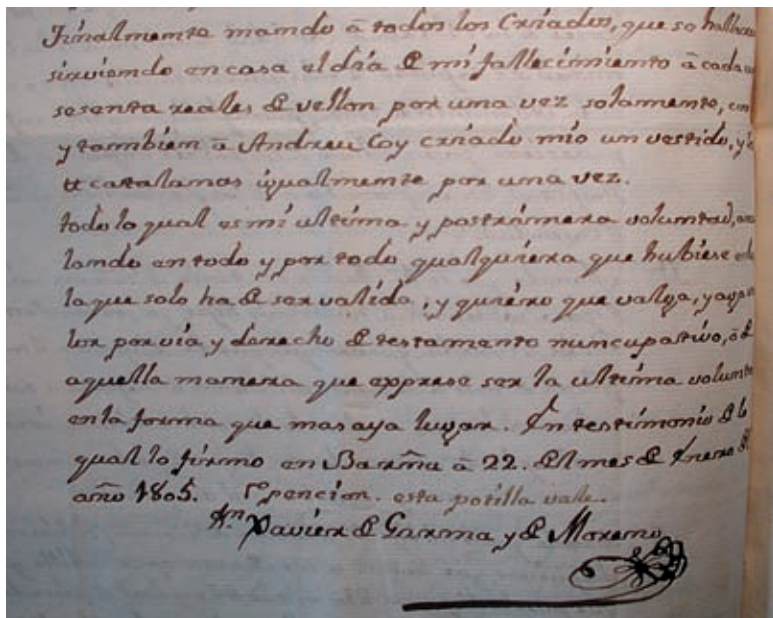 Finalmente mando â todos los Criados, que se hallaren
sirviendo en casa el dia de mi fallecimiento â cada
sesenta reales de vellon por una vez solamente,
y tambien â Andreu Coy criado mio un vestido, y
catalanas igualmente por una vez.
todo lo qual es mi ultima y postrimera voluntad,
lando en todo y por todo qualquiera que hubiese
la que solo ha de ser valida, y quiero que valga, y
lor por via y derecho de testamento nuncupativo, ô de
aquella manera que exprese ser la ultima volunt
en la forma que mas aya lugar. En testimonio de lo
qual lo firmo en Barña â 22. del mes de Enero del
año 1805. esta valle.
Xavier de Garma y de Moreno